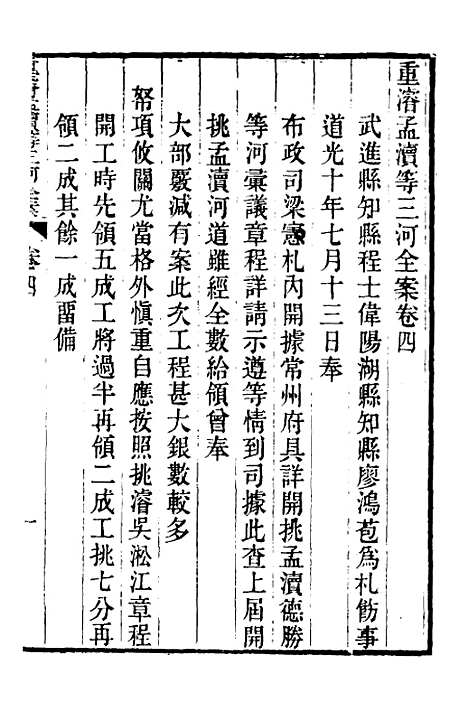 重濬孟瀆等三河全案卷四
武進縣知縣程士偉陽湖縣知縣廖鴻苞爲札飭事
道光十年七月十三日奉
布政司梁憲札內開據常州府具詳開挑孟瀆德勝
等河彙議章程詳請示遵等情到司據此查上屆開
挑孟瀆河道雖經全數給領曾奉
大部覈減有案此次工程甚大銀數較多
帑項攸關尤當格外愼重自應按照挑濬吳淞江章程
開工時先領五成工將過半再領二成工挑七分再
領二成其餘一成畱備
卷四
一